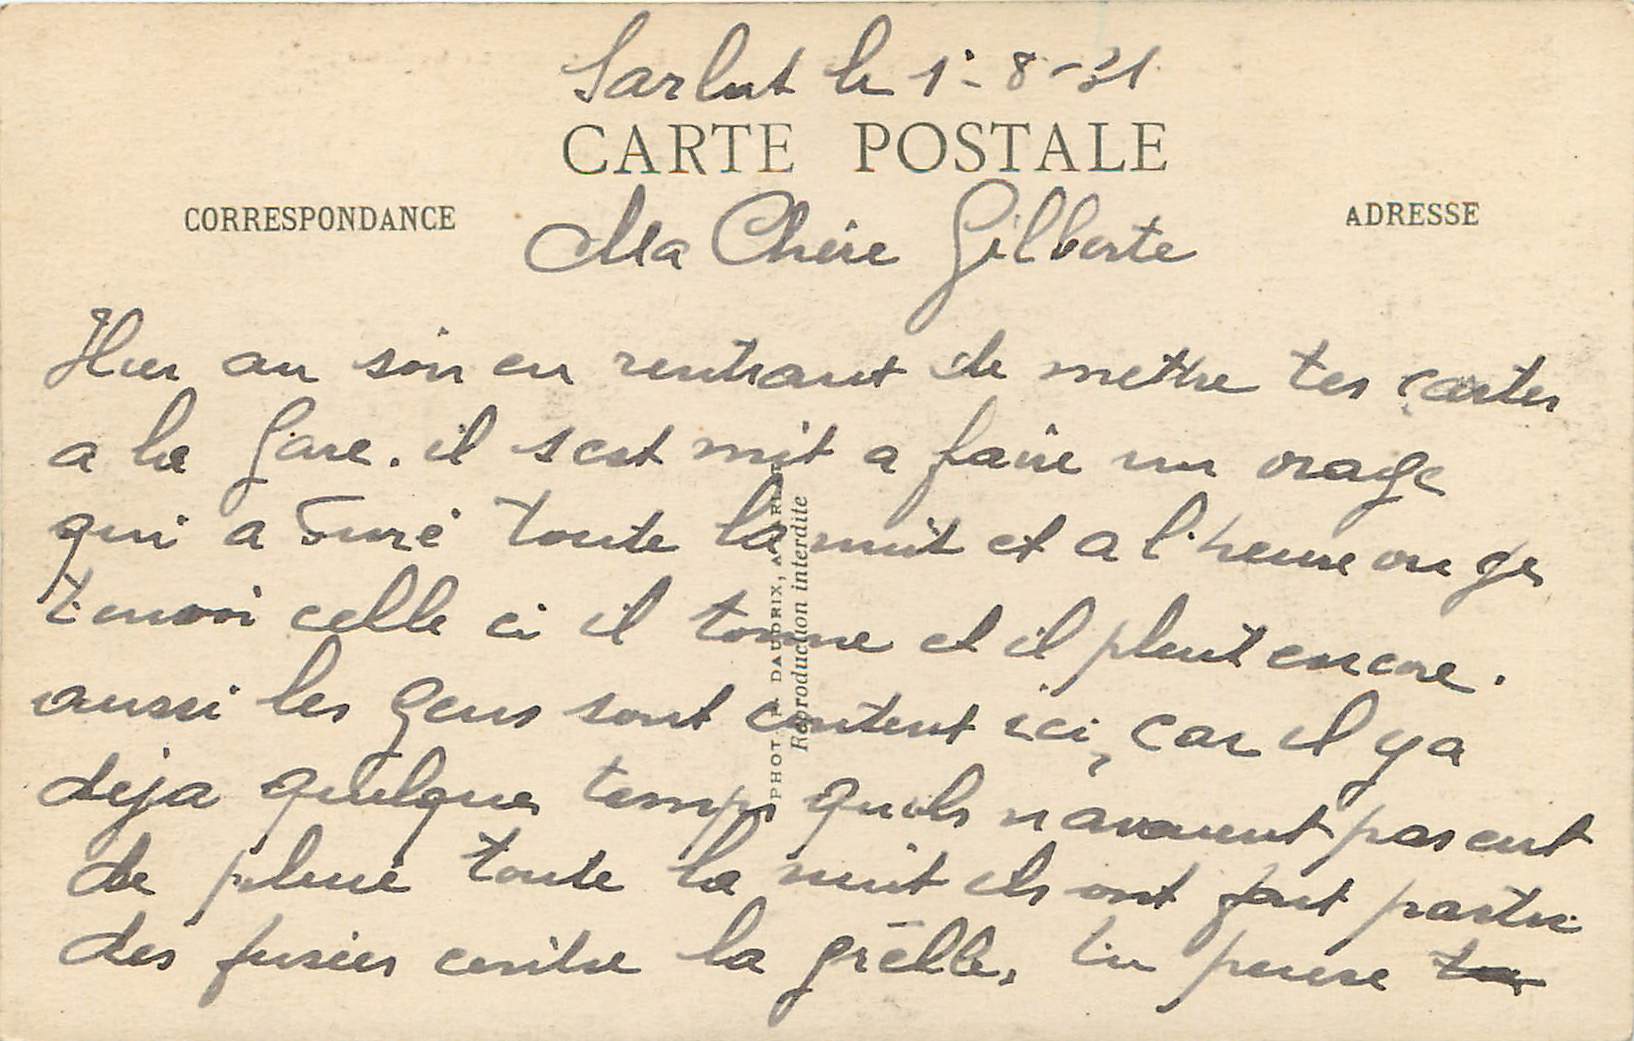 Sarlat le 1-8-31
CARTE POSTALE
CORRESPONDANCE
ADRESSE
Ma Chère Gilberte
Hier au soir en rentrant de mettre tes cartes
a la Gare. il sest mit a faire un orage
qui a Duré toute la nuit et a l'heure ou ges
t'envoi celle ci il tonne et il pleut encore.
aussi les gens sont content ici, car il ya
deja quelques temps quils n'avaient pas eut
de pluie toute la nuit ils ont fait partir
des fusées contre la grèlle, tu pense
PHOT. DAUDRIX,
Reproduction interdite